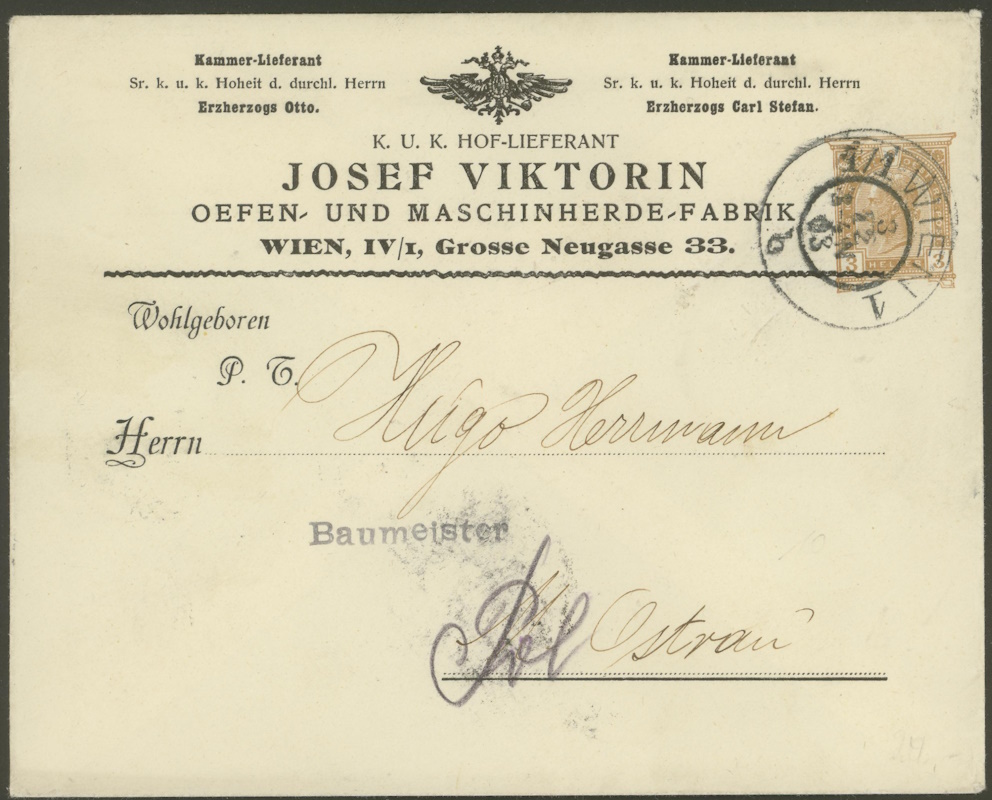 Kammer-Lieferant
Sr. k. u. k. Hoheit d. durchl. Herrn
Erzherzogs Otto.
Kammer-Lieferant
Sr. k. u. k. Hoheit d. durchl. Herrn
Erzherzogs Carl Stefan.
K. U. K. HOF-LIEFERANT
JOSEF VIKTORIN
OEFEN- UND MASCHINHERDE-FABRIK
WIEN, IV/1, Grosse Neugasse 33.
1/1 WIEN 1
3
03
3 3
Wohlgeboren
P. T.
Herrn Hugo Herrmann
Baumeister
M Ostrau
24.-